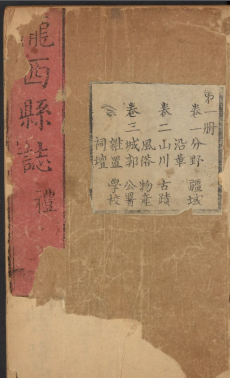 隴西縣誌
禮
第 册
卷一 分野 疆域
沿革
卷二 山川 古蹟
風俗 物產
卷三 城郭 公署
建置 學校
祠壇